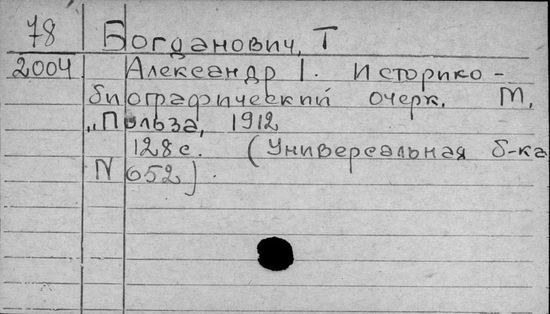 78 Богданович, Т
2004 Александр I. Историко-
биографический очерк. М,
„Польза, 1912
128 с. (Универсальная б-ка
N 652).